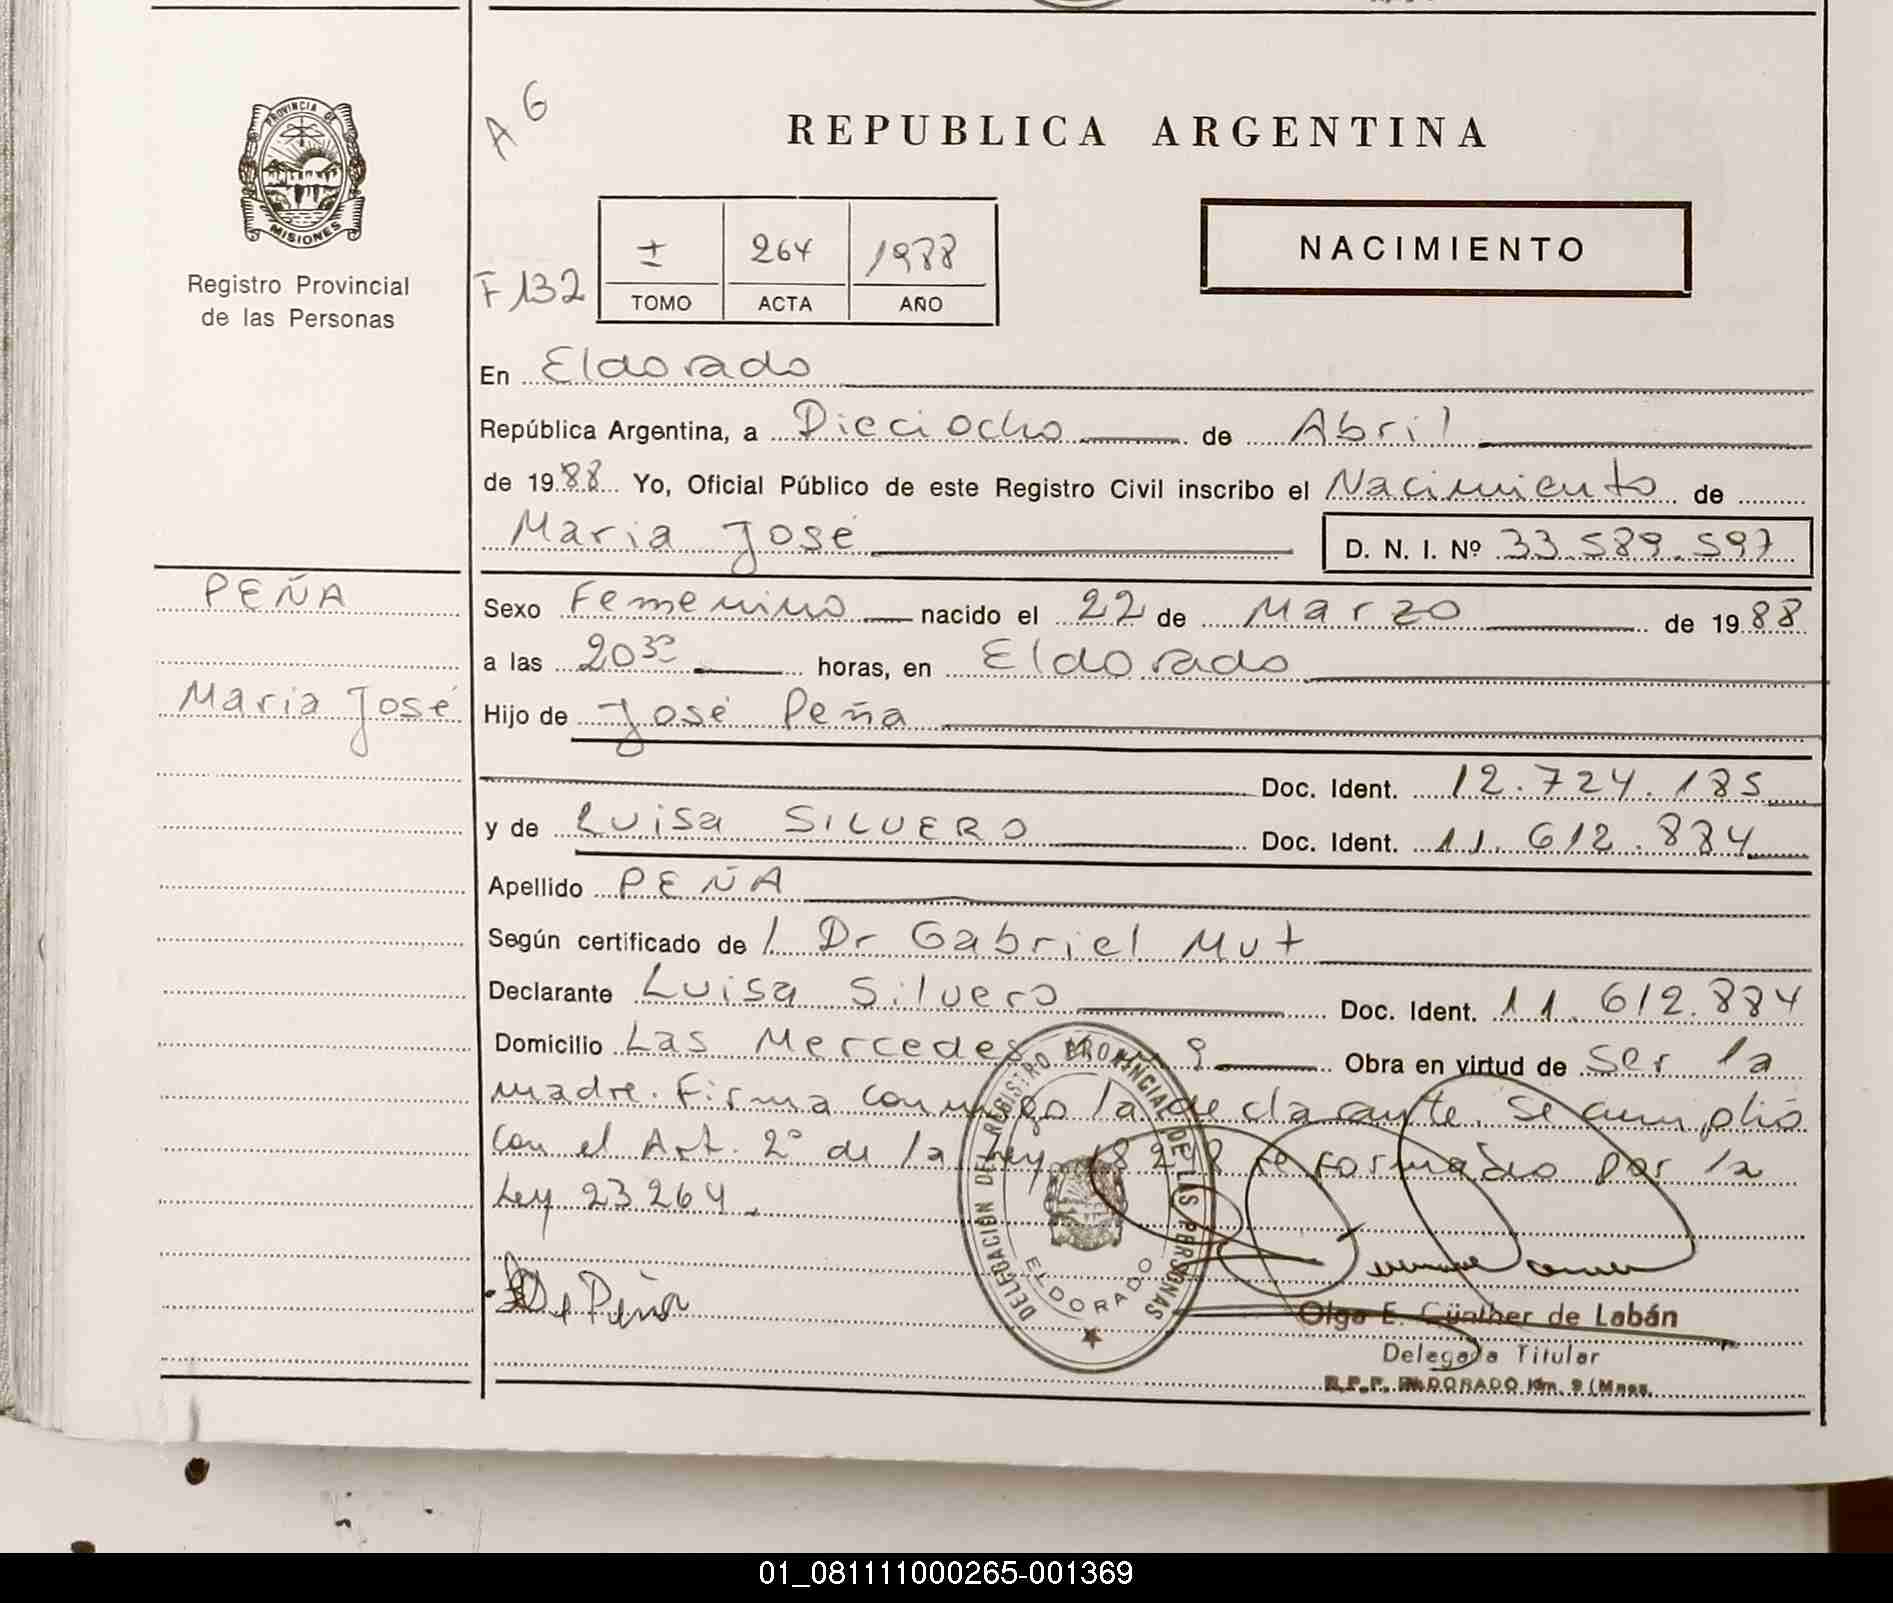 A G
REPUBLICA ARGENTINA
PROVINCIA DE
MISIONES
Registro Provincial
de las Personas
F 132
I 264 1988
TOMO ACTA AÑO
NACIMIENTO
En Eldorado
República Argentina, a Dieciocho de Abril
de 1988 Yo, Oficial Público de este Registro Civil inscribo el Nacimiento de
Maria José D. N. I. Nº 33.589.597
PEÑA
Maria José
Sexo Femenino nacido el 22 de Marzo de 1988
a las 20 30 horas, en Eldorado
Hijo de José Peña
Doc. Ident. 12.724.185
y de Luisa SILVERO Doc. Ident. 11.612.884
Apellido PEÑA
Según certificado de / Dr Gabriel Mut
Declarante Luisa Silvero Doc. Ident. 11.612.884
Domicilio Las Mercedes 9 Obra en virtud de Ser la
madre. Firma conmigo la declarante. Se cumplió
con el Art. 2º de la Ley 18248 reformado por la
Ley 23264.
de Peña
DELEGACIÓN DEL REGISTRO PROVINCIAL DE LAS PERSONAS
ELDORADO
Olga E. Günther de Labán
Delegada Titular
R.P.P. ELDORADO Km. 9 (Mnes.
01_081111000265-001369